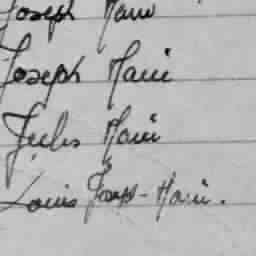 Joseph Marie
Joseph Marie
Jules Marie
Louis Joseph-Marie.